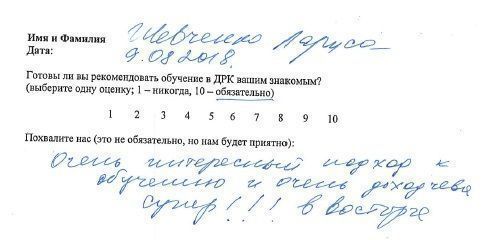 Имя и Фамилия Шевченко Лариса
Дата: 9.08.2018.
Готовы ли вы рекомендовать обучение в ДРК вашим знакомым?
(выберите одну оценку; 1 – никогда, 10 – обязательно)
1 2 3 4 5 6 7 8 9 10
Похвалите нас (это не обязательно, но нам будет приятно):
Очень интересный подход к
обучению и очень доходчева
супер!!! в восторге